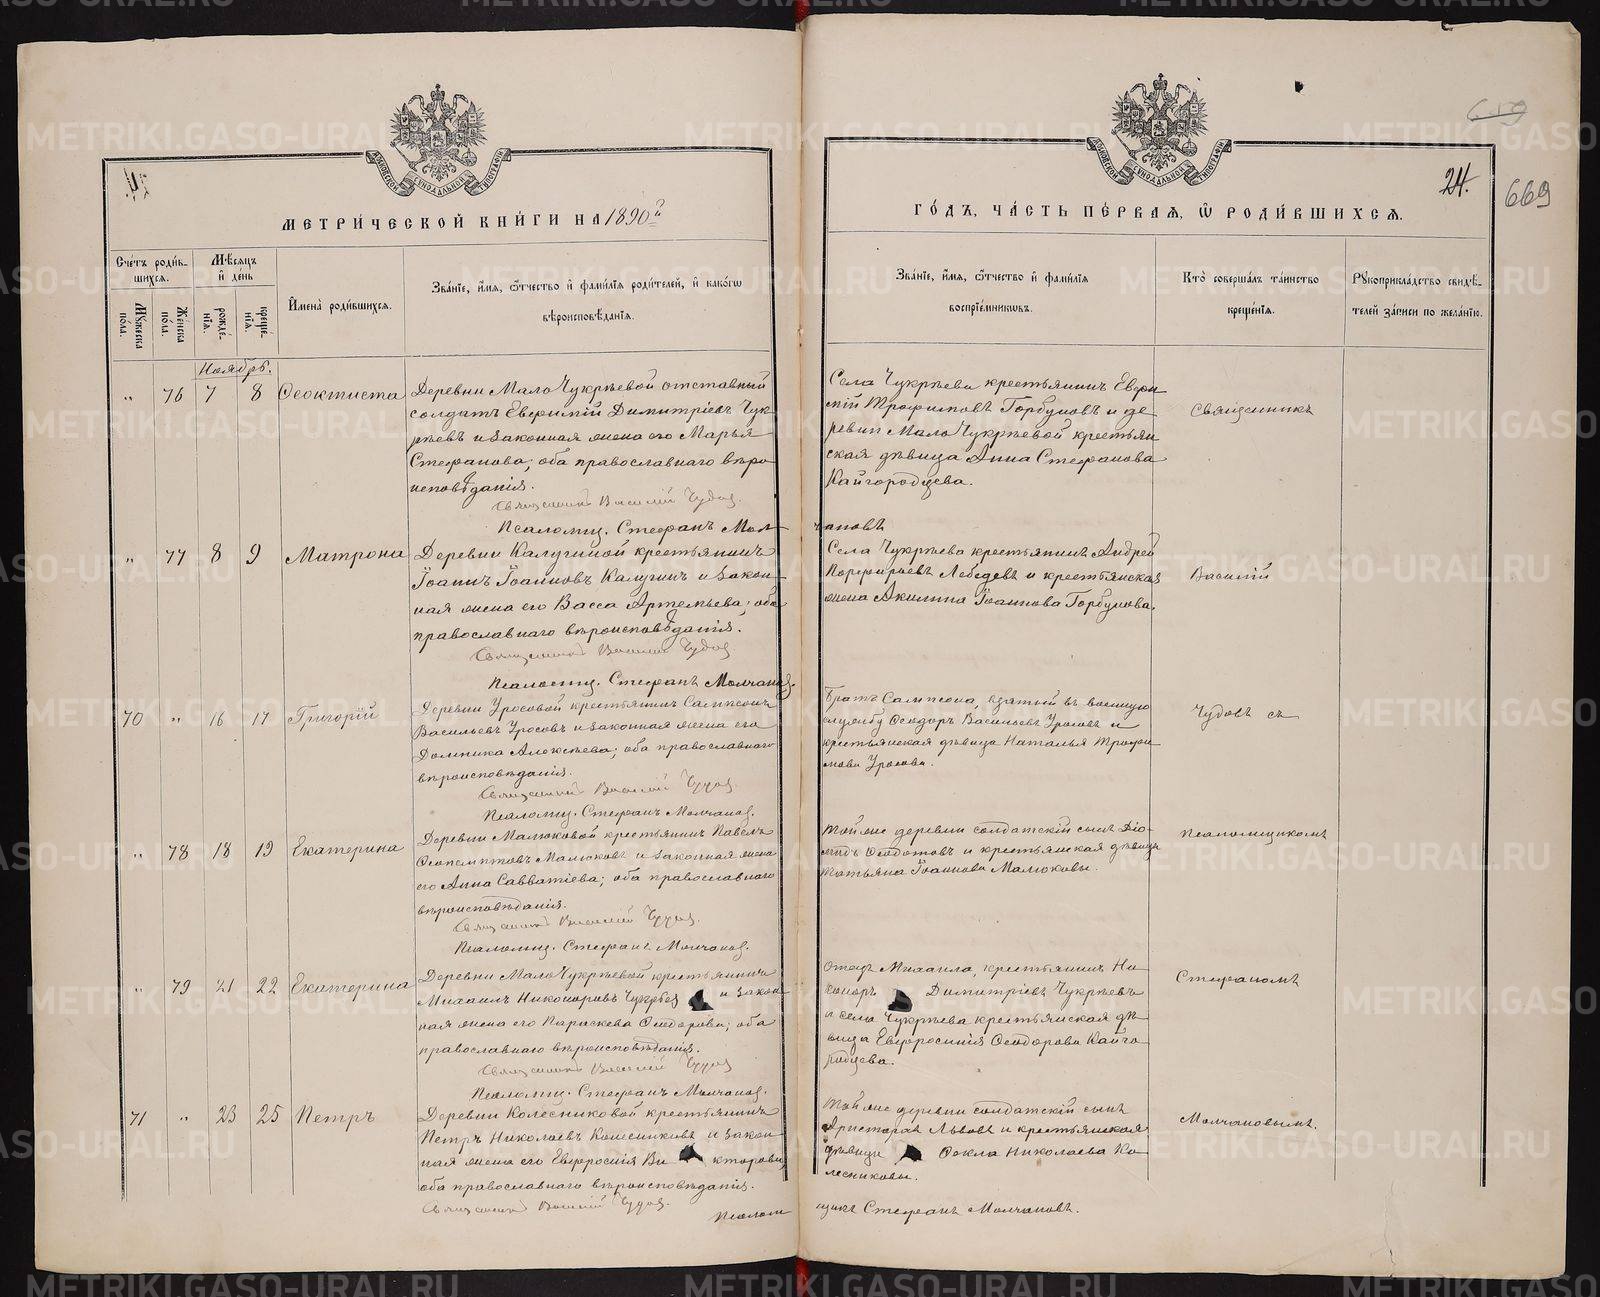 МЕТРИ́ЧЕСКОЙ КНИ́ГИ НА 1890 г.
Сче́тъ роди́в-
шихся.
Мѣ́сяцъ
и де́нь
Мꙋ́жеска
по́ла.
Же́нска
по́ла.
рожде́-
нїя.
креще́-
нїя.
И҆мена̀ роди́вшихся.
Зва́нїе, и҆́мя, ѻ҆́тчество и҆ фами́лїя роди́телей, и҆ како́гѡ
вѣроисповѣ́данїя.
Ноябрь.
„ 76 7 8 Ѳеоктиста
Деревни МалоЧукрѣевой отставный
солдатъ Евфимій Димитріевъ Чук-
рѣевъ и законная жена его Марья
Стефанова; оба православнаго вѣро
исповѣданія.
Священникъ Василій Чудов.
Псаломщ. Стефанъ Мол-
„ 77 8 9 Матрона
Деревни Калугиной крестьянинъ
Іоаннъ Іоанновъ Калугинъ и закон-
ная жена его Васса Артемьева; оба
православнаго вѣроисповѣданія.
Священникъ Василій Чудов
Псаломщ. Стефанъ Молчанов.
70 „ 16 17 Григорій
Деревни Уросовой крестьянинъ Сампсонъ
Васильевъ Уросовъ и законная жена его
Домника Алексѣева; оба православнаго
вѣроисповѣданія.
Священникъ Василій Чудов
Псаломщ. Стефанъ Молчанов.
„ 78 18 19 Екатерина
Деревни Малюковой крестьянинъ Павелъ
Ѳеопемптовъ Малюковъ и законная жена
его Анна Савватіева; оба православнаго
вѣроисповѣданія.
Священникъ Василій Чудов.
Псаломщ. Стефанъ Молчанов.
„ 79 21 22 Екатерина
Деревни МалоЧукрѣевой крестьянинъ
Михаилъ Никоноровъ Чукрѣев и закон
ная жена его Параскева Ѳеодорова; оба
православнаго вѣроисповѣданія.
Священникъ Василій Чудов
Псаломщ. Стефанъ Молчанов.
71 „ 23 25 Петръ
Деревни Колесниковой крестьянинъ
Петръ Николаевъ Колесниковъ и закон
ная жена его Евфросинія Ви кторова;
оба православнаго вѣроисповѣданія.
Священникъ Василій Чудов.
Псалом
24.
669
ГО́ДЪ, ЧА́СТЬ ПЕ́РВАЯ, Ѽ РОДИ́ВШИХСЯ.
Зва́нїе, и҆́мя, ѻ҆́тчество и҆ фами́лїя
воспрїе́мниковъ.
Кто̀ соверша́лъ та́инство
креще́нїя.
Рꙋкоприкла́дство свидѣ́-
телей за́писи по жела́нїю.
Села Чукрѣева крестьянинъ Евфи-
мій Трофимовъ Горбуновъ и де-
ревни МалоЧукрѣевой крестьян
ская дѣвица Анна Стефанова
Кайгородцева.
Священникъ
чановъ
Села Чукрѣева крестьянинъ Андрей
Порфирьевъ Лебедевъ и крестьянская
жена Акилина Іоаннова Горбунова.
Василій
Братъ Сампсона, взятый въ военную
службу Ѳеодоръ Васильевъ Уросовъ и
крестьянская дѣвица Наталья Трофи-
мова Уросова.
Чудовъ съ
Той же деревни солдатскій сынъ Діо-
мидъ Ѳедотовъ и крестьянская дѣвица
Татьяна Іоаннова Малюковы.
псаломщикомъ
Отецъ Михаила, крестьянинъ Ни-
коноръ Димитріевъ Чукрѣевъ
и села Чукрѣева крестьянская дѣ-
вица Евфросинія Ѳеодорова Кайго-
родцева.
Стефаномъ
Той же деревни солдатскій сынъ
Аристархъ Львовъ и крестьянская
дѣвица Ѳекла Николаева Ко-
лесниковы.
Молчановымъ.
щикъ Стефанъ Молчановъ.
METRIKI.GASO-URAL.RU